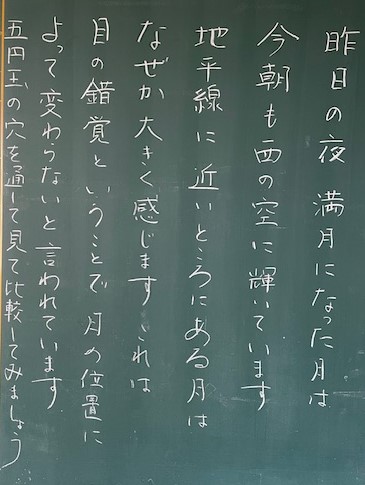 昨日の夜 満月になった月は
今朝も西の空に輝いています
地平線に近いところにある月は
なぜか大きく感じます これは
目の錯覚ということで 月の位置に
よって変わらないと言われています
五円玉の穴を通して見て比較してみましょう